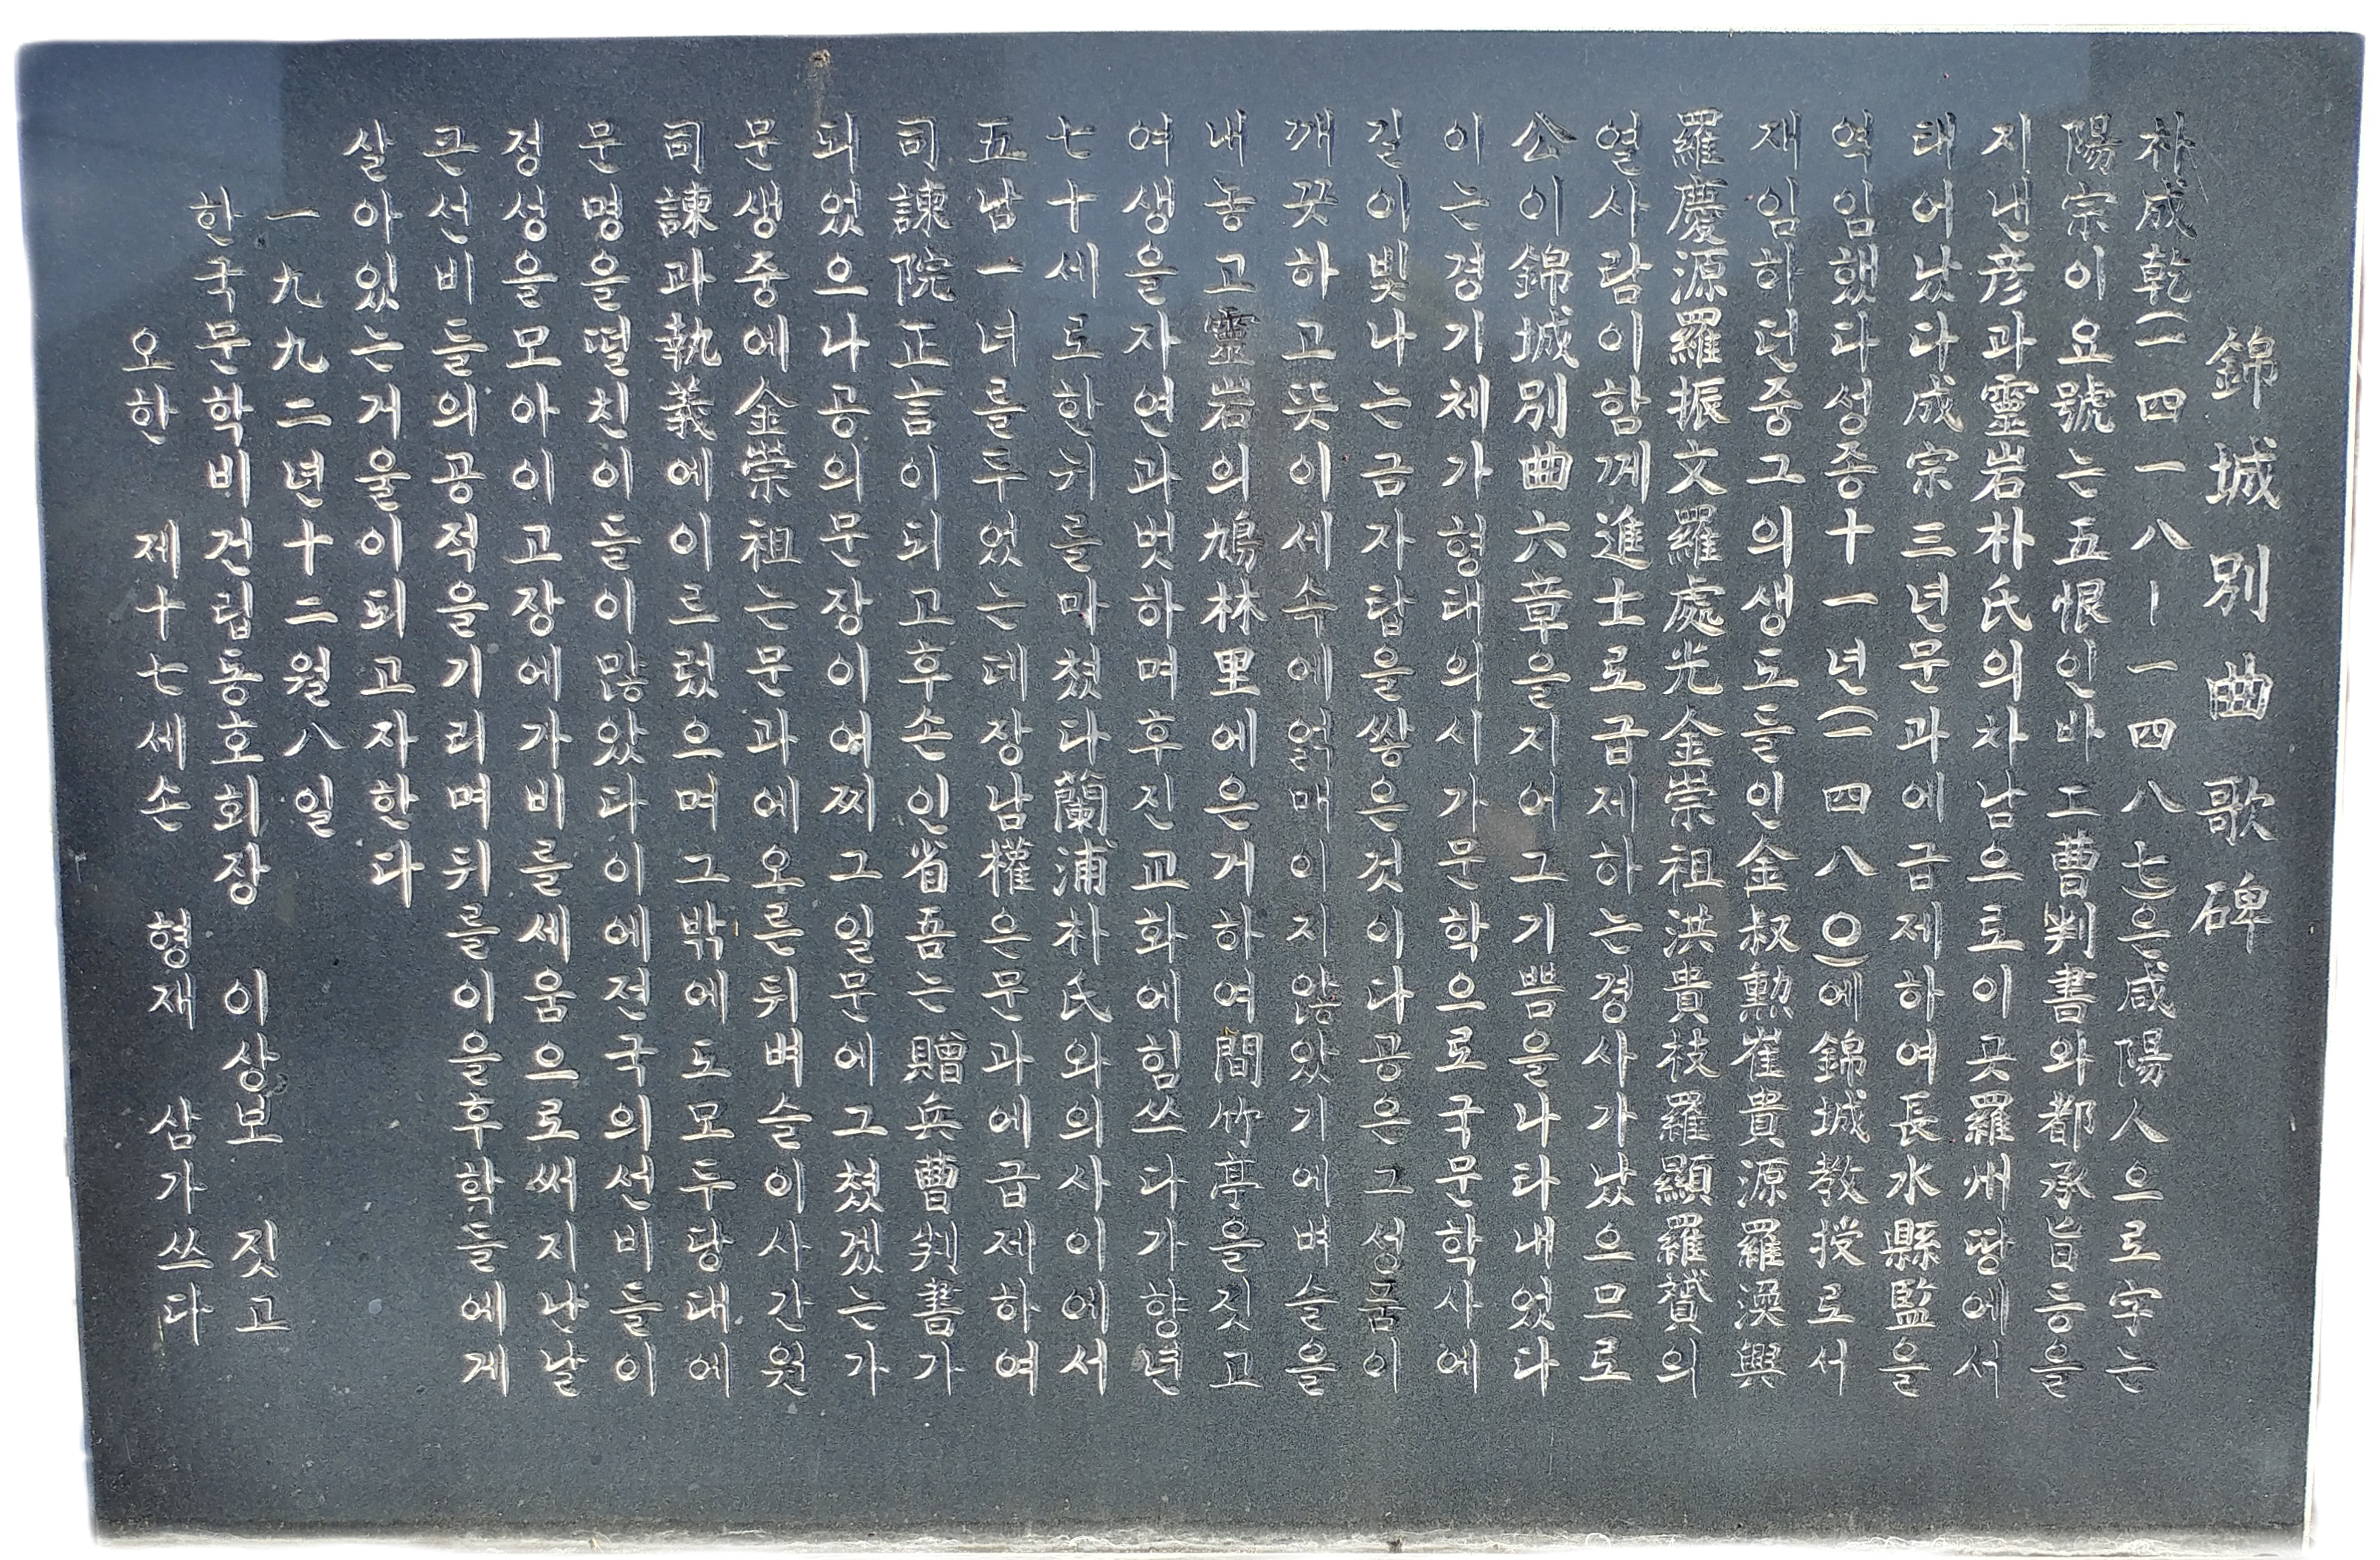 錦城別曲歌碑
朴成乾(一四一八-一四八七)은咸陽人으로字는
陽宗이요號는五恨인바工曹判書와都承旨등을
지낸彦과靈岩朴氏의차남으로이곳羅州땅에서
태어났다成宗三년문과에급제하여長水縣監을
역임했다성종十一년(一四八○)에錦城敎授로서
재임하던중그의생도들인金叔勳崔貴源羅渙興
羅慶源羅振文羅處光金崇祖洪貴枝羅顯羅贇의
열사람이함께進士로급제하는경사가났으므로
公이錦城別曲六章을지어그기쁨을나타내었다
이는경기체가형태의시가문학으로국문학사에
길이빛나는금자탑을쌓은것이다공은그성품이
깨끗하고뜻이세속에얽매이지않았기에벼슬을
내놓고靈岩의鳩林里에은거하여間竹亭을짓고
여생을자연과벗하며후진교화에힘쓰다가향년
七十세로한뉘를마쳤다蘭浦朴氏와의사이에서
五남一녀를두었는데장남權은문과에급제하여
司諫院正言이되고후손인省吾는贈兵曹判書가
되었으나공의문장이어찌그일문에그쳤겠는가
문생중에金崇祖는문과에오른뒤벼슬이사간원
司諫과執義에이르렀으며그밖에도모두당대에
문명을떨친이들이많았다이에전국의선비들이
정성을모아이고장에가비를세움으로써지난날
큰선비들의공적을기리며뒤를이을후학들에게
살아있는거울이되고자한다
一九九二년十二월八일
한국문학비건립동호회장 이상보 짓고
오한 제十七세손 형재 삼가쓰다